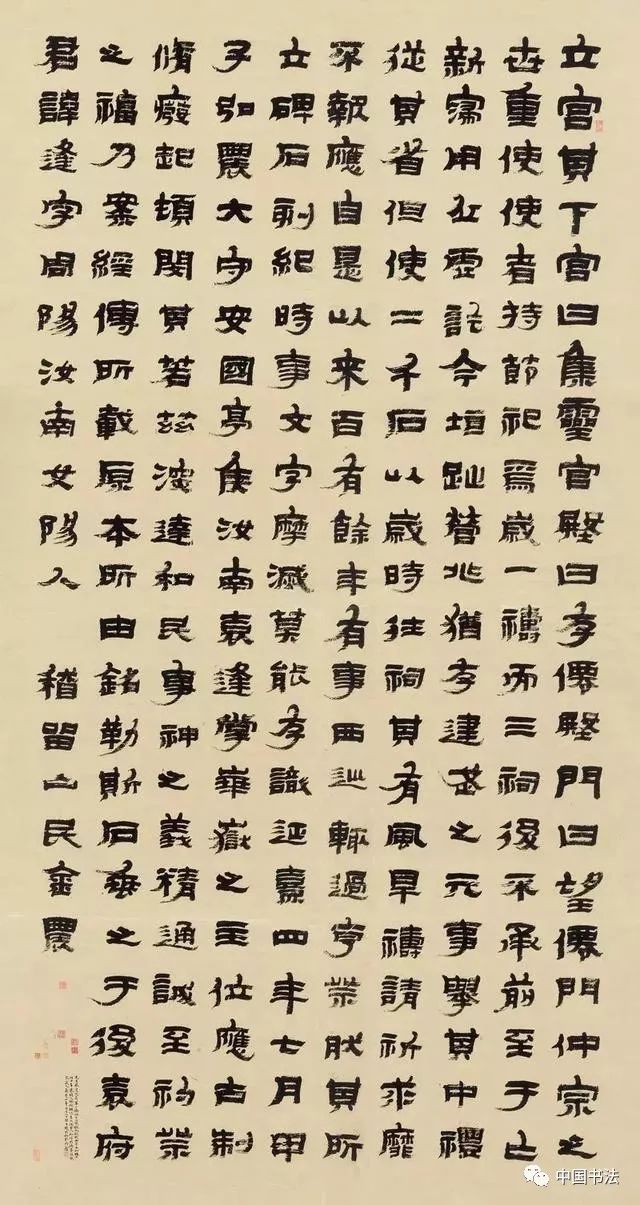 立宮其下宮曰集靈宮殿曰存僊殿門曰望僊門仲宗之
世重使使者持節祀焉歲一禱而三祠後不承前至于亡
新寖用丘虛訖今垣趾營兆猶存建武之元事舉其中禮
從其省但使二千石以歲時往祠其有風旱禱請祈求靡
不報應自是以來百有餘年有事西巡輒過亨祭然其所
立碑石刻紀時事文字摩滅莫能存識延熹四年七月甲
子弘農大守安國亭侯汝南袁逢掌華嶽之主位應古制
脩癈起頓閔其若茲深達和民事神之義精通誠至礿祭
之福乃案經傳所載原本所由銘勒斯石垂之于後袁府
君諱逢字周陽汝南女陽人 稽留山民金農
中国书法